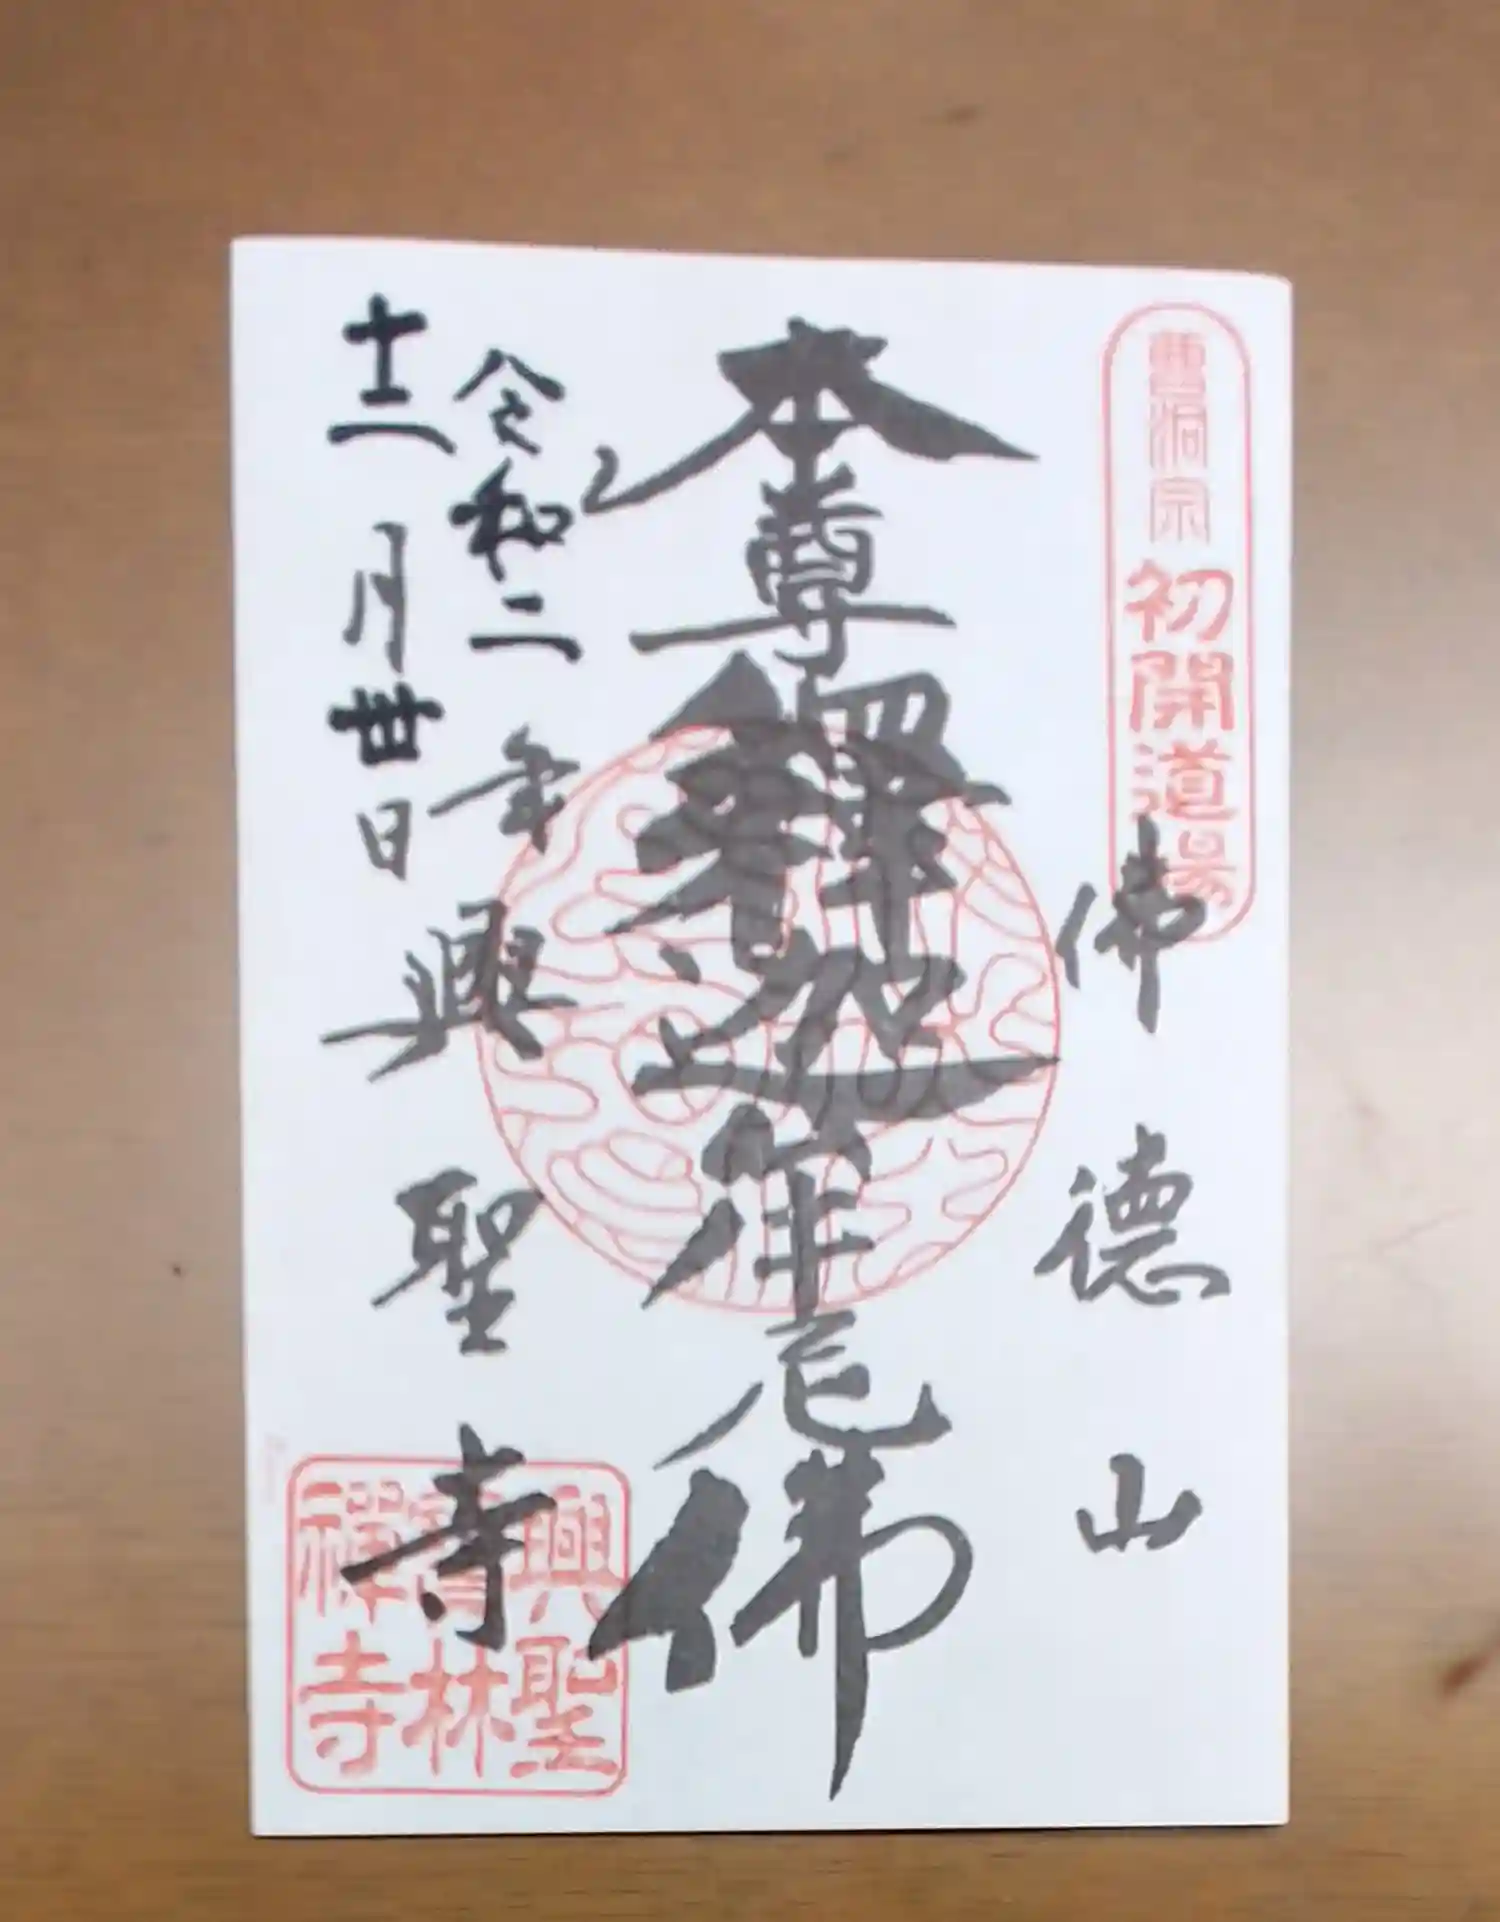 曹洞宗初開道場
佛德山
本尊釋迦牟尼佛
令和二年
十二月卅日
興聖寺
興聖
寶林
禪寺